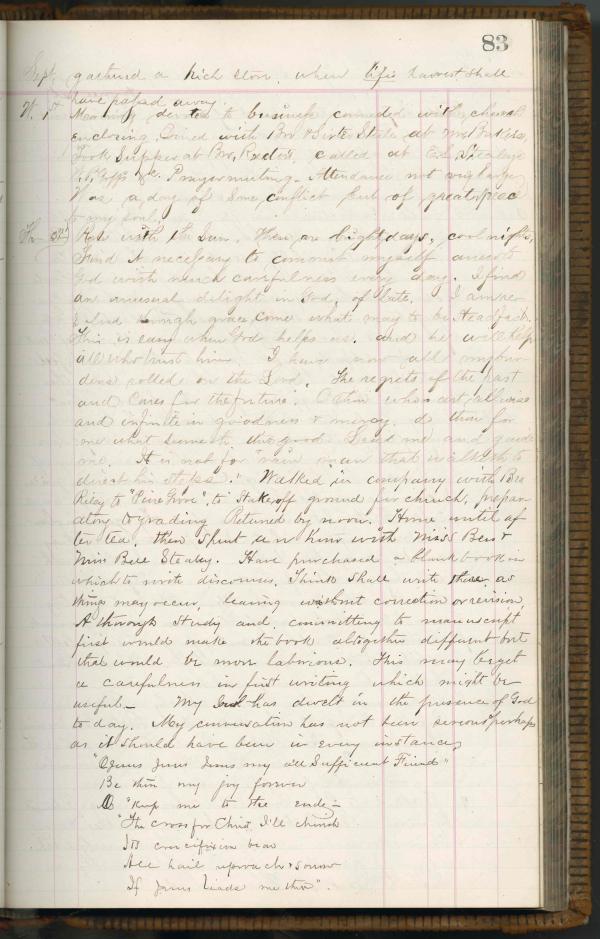 83
Sept, gathered a rich store, when life's harvest shall
have passed away.
W. 1st Morning devoted to business connected with church
enclosing. Dined with Bro & Sister Steele at Mrs
Took Supper at Bro. Rector's, called at Ed Stealey's
&c. Prayer meeting. Attendance not very large.
Was a day of some conflict but of great peace
to my soul.
Th. 2nd Rose with the Sun. These are bright days, cool nights,
Find it necessary to commit myself anew to
God with much carefulness every day. I find
an unusual delight in God, of late. I
find enough grace, come what may to be steadfast.
This is easy when God helps us. and he will help
all who trust him. I have now all my bur-
dens rolled on the Lord. The regrets of the past
and cares for the future. O thou who art all wise
and infinite in goodness & mercy, do thou for
me what seemeth thee good. Lead me and guide
me. It is not for "vain man that walketh to
direct his steps." Walked in company with Bro
Riley to "Pine Grove", to stake off ground for church, prepar-
atory to grading. Returned by noon. Home until af
ter tea, then spent an hour with Miss Bess &
Miss Bell Stealey. Have purchased a blank book in
which to write discourses, Think shall write them, as
things may occur, leaving without correction or revision.
A thorough study and, committing to manuscript
first would make the book altogether different but
that would be more laborious. This may beget
a carefulness in first writing which might be
useful. — My soul has dwelt in the presence of God
to day. My conversation has not been serious perhaps
as it should have been in every instance,
"Jesus Jesus Jesus my all Sufficient Friend"
Be thou my joy forever
"Keep me to the end —
"The cross for Christ I'll cherish
Its crucifixion bear
All hail reproach & sorrow
If Jesus leads me there".